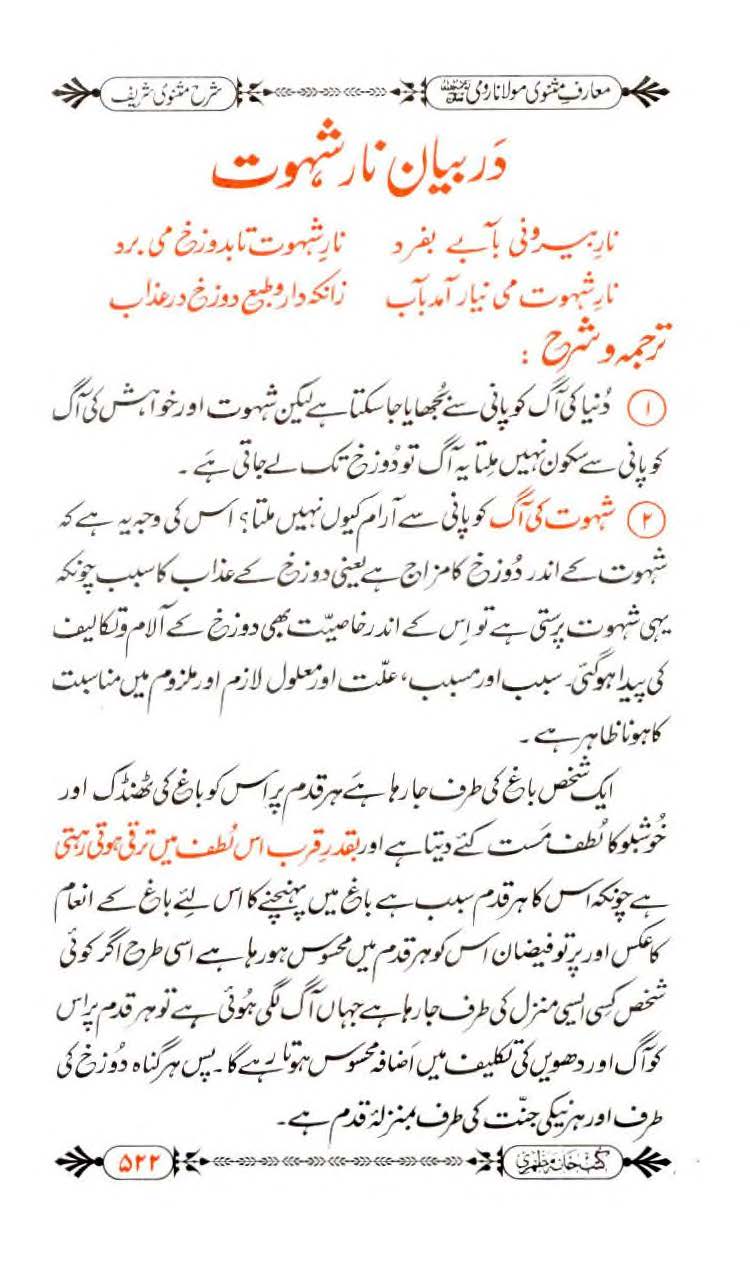 معارف مثنوی مولانا رومی شرح مثنوی شریف
دَر بیان نار شہوت
نارِ بیرونی بآبے بفسرد نارِ شہوت تا بدوزخ می برد
نارِ شہوت می نیار آمد بآب زانکہ دارد طبع دوزخ در عذاب
ترجمہ و شرح :
۱ دُنیا کی آگ کو پانی سے بُجھایا جا سکتا ہے لیکن شہوت اور خواہش کی آگ
کو پانی سے سکون نہیں مِلتا یہ آگ تو دُوزخ تک لے جاتی ہے ۔
۲ شہوت کی آگ کو پانی سے آرام کیوں نہیں ملتا؟ اس کی وجہ یہ ہے کہ
شہوت کے اندر دُوزخ کا مزاج ہے یعنی دوزخ کے عذاب کا سبب چونکہ
یہی شہوت پرستی ہے تو اِس کے اندر خاصیّت بھی دوزخ کے آلام و تکالیف
کی پیدا ہو گئی۔ سبب اور مسبب، علّت اور معلول لازم اور ملزوم میں مناسبت
کا ہونا ظاہر ہے ۔
ایک شخص باغ کی طرف جا رہا ہے ہر قدم پر اُس کو باغ کی ٹھنڈک اور
خُوشبو کا لُطف مَست کئے دیتا ہے اور بقدرِ قرب اس لُطف میں ترقی ہوتی رہتی
ہے چونکہ اس کا ہر قدم سبب ہے باغ میں پہنچنے کا اس لئے باغ کے انعام
کا عکس اور پرتو فیضان اس کو ہر قدم میں محسوس ہو رہا ہے اسی طرح اگر کوئی
شخص کِسی ایسی منزل کی طرف جا رہا ہے جہاں آگ لگی ہُوئی ہے تو ہر قدم پر اس
کو آگ اور دھویں کی تکلیف میں اَضافہ محسوس ہوتا رہے گا۔ پس ہر گناہ دُوزخ کی
طرف اور ہر نیکی جنّت کی طرف بمنزلۂ قدم ہے۔
کتب خانہ مظہری ۵۲۲